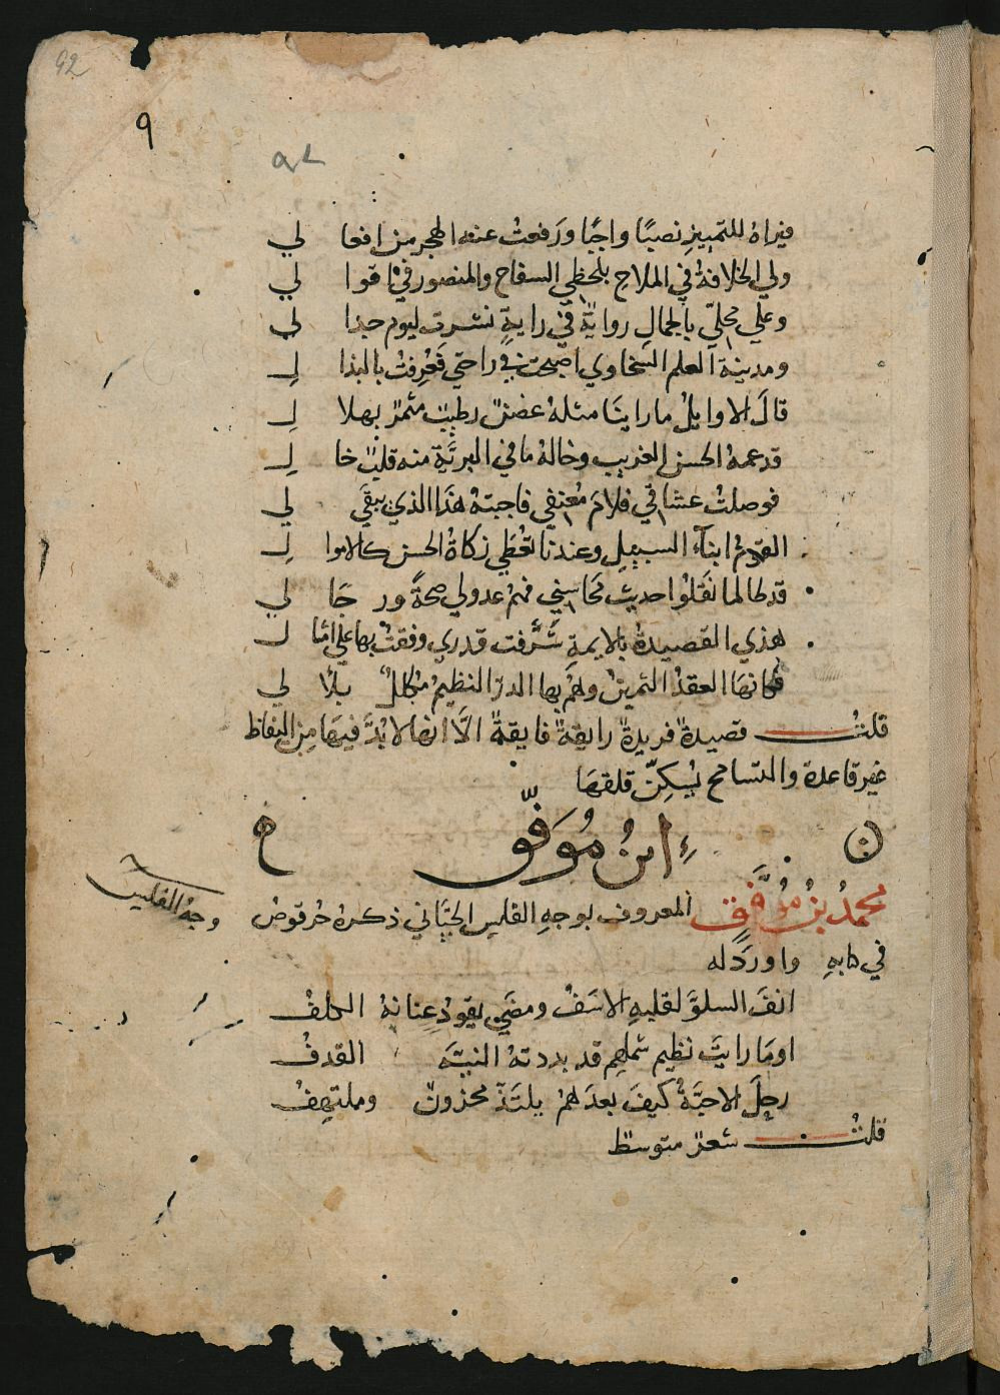 92
٩
فيراه للتمييز نصبًا واجبًا ورفعت عنه الهجر من افعا لي
ولي الخلافة في الملاح بلحظي السفاح والمنصور في اقوا لي
وعلي محلي بالجمال رواية في راية نشرت ليوم جدا لي
ومدينة العلم السخاوي اصبحت في راحتي فعرفت بالبذا لي
قال الاوايل ما راينا مثله غصن رطيب مثمر بهلا لي
قد عمه الحسن الغريب وخاله ما في البرية منه قلب خا لي
فوصلت عشاقي فلام معنفي فاجبته هذا الذي يبقى لي
القوم ابناء السبيل وعندنا تعطي زكاة الحسن كالاموا لي
قد طالما نقلوا احديث محاسني فهم عدولي صحة ور جا لي
هذي القصيدة بالايمة شرفت قدري وفقت بها علي امثا لي
فكانها العقد الثمين وهم بها الدر النظيم مكلل بلآ لي
قلت قصيدة فريدة رايقة فايقة الا انها لا بد فيها من
غير قاعدة والتسامح يسكن قلقها
ابن موفق
محمد بن موفق المعروف بوجه الفلس الجياني ذكره حرقوص
وجه الفليس
في كتابه واورد له
انف السلو لقلبه الاسف ومضى يقود عنانه الكلف
اوما رايت نظيم شملهم قد بددته النية القدف
رحل الاحبة كيف بعدهم يلتذ محزون وملتهف
قلت شعر متوسط